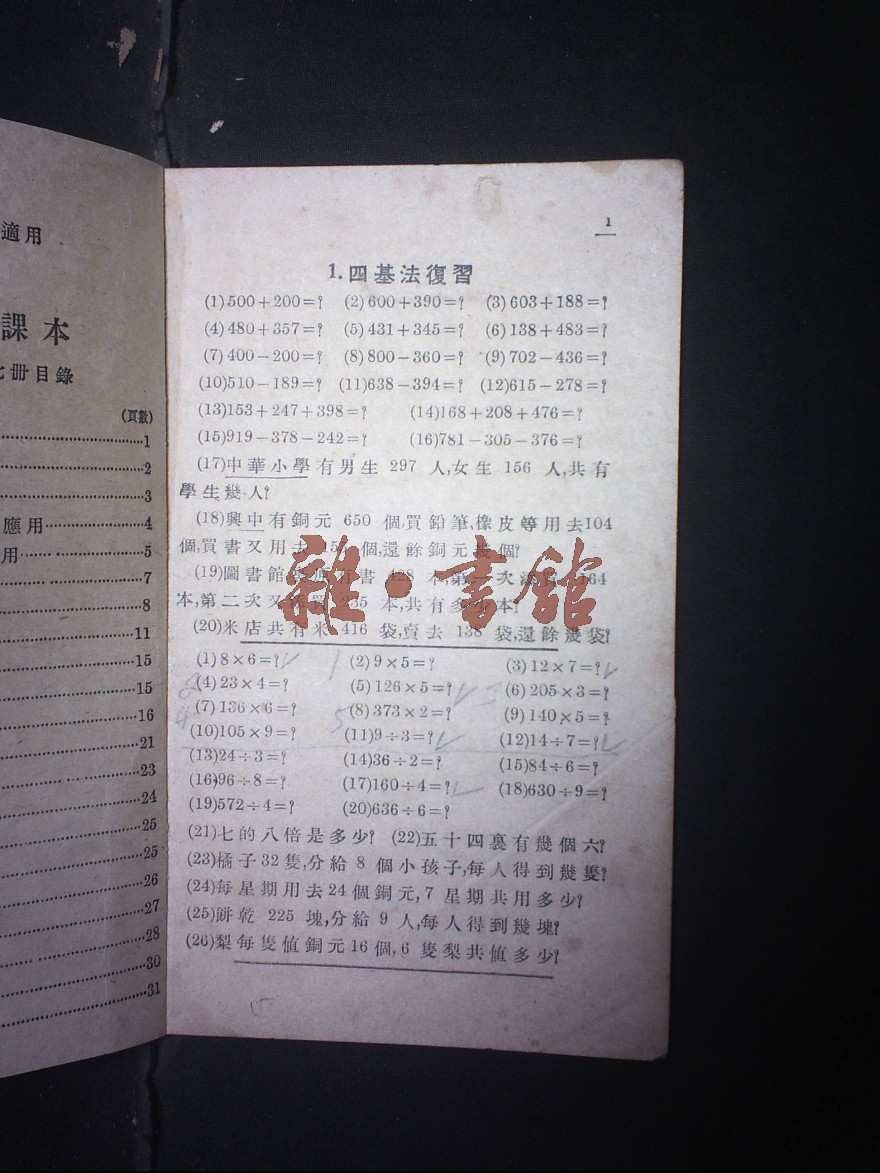 適用
課本
冊目錄
(頁數)
1
2
3
應用 4
用 5
7
8
11
15
15
16
21
23
24
25
25
26
27
28
30
31
1
1.四基法復習
(1)500+200=? (2)600+390=? (3)603+188=?
(4)480+357=? (5)431+345=? (6)138+483=?
(7)400-200=? (8)800-360=? (9)702-436=?
(10)510-189=? (11)638-394=? (12)615-278=?
(13)153+247+398=? (14)168+208+476=?
(15)919-378-242=? (16)781-305-376=?
(17)中華小學有男生 297 人,女生 156 人,共有
學生幾人?
(18)興中有銅元 650 個,買鉛筆、橡皮等用去104
個,買書又用去 個,還餘銅元幾個?
(19)圖書館 有書 428 本,第一次添 164
本,第二次又 本,共有多少本?
(20)米店共有米 416 袋,賣去 138 袋,還餘幾袋?
(1)8×6=? (2)9×5=? (3)12×7=?
(4)23×4=? (5)126×5=? (6)205×3=?
(7)136×6=? (8)373×2=? (9)140×5=?
(10)105×9=? (11)9÷3=? (12)14÷7=?
(13)24÷3=? (14)36÷2=? (15)84÷6=?
(16)96÷8=? (17)160÷4=? (18)630÷9=?
(19)572÷4=? (20)636÷6=?
(21)七的八倍是多少? (22)五十四裏有幾個六?
(23)橘子32隻,分給 8 個小孩子,每人得到幾隻?
(24)每星期用去24個銅元,7 星期共用多少?
(25)餅乾 225 塊,分給 9 人,每人得到幾塊?
(26)梨每隻值銅元16個,6 隻梨共值多少?
雜·書館